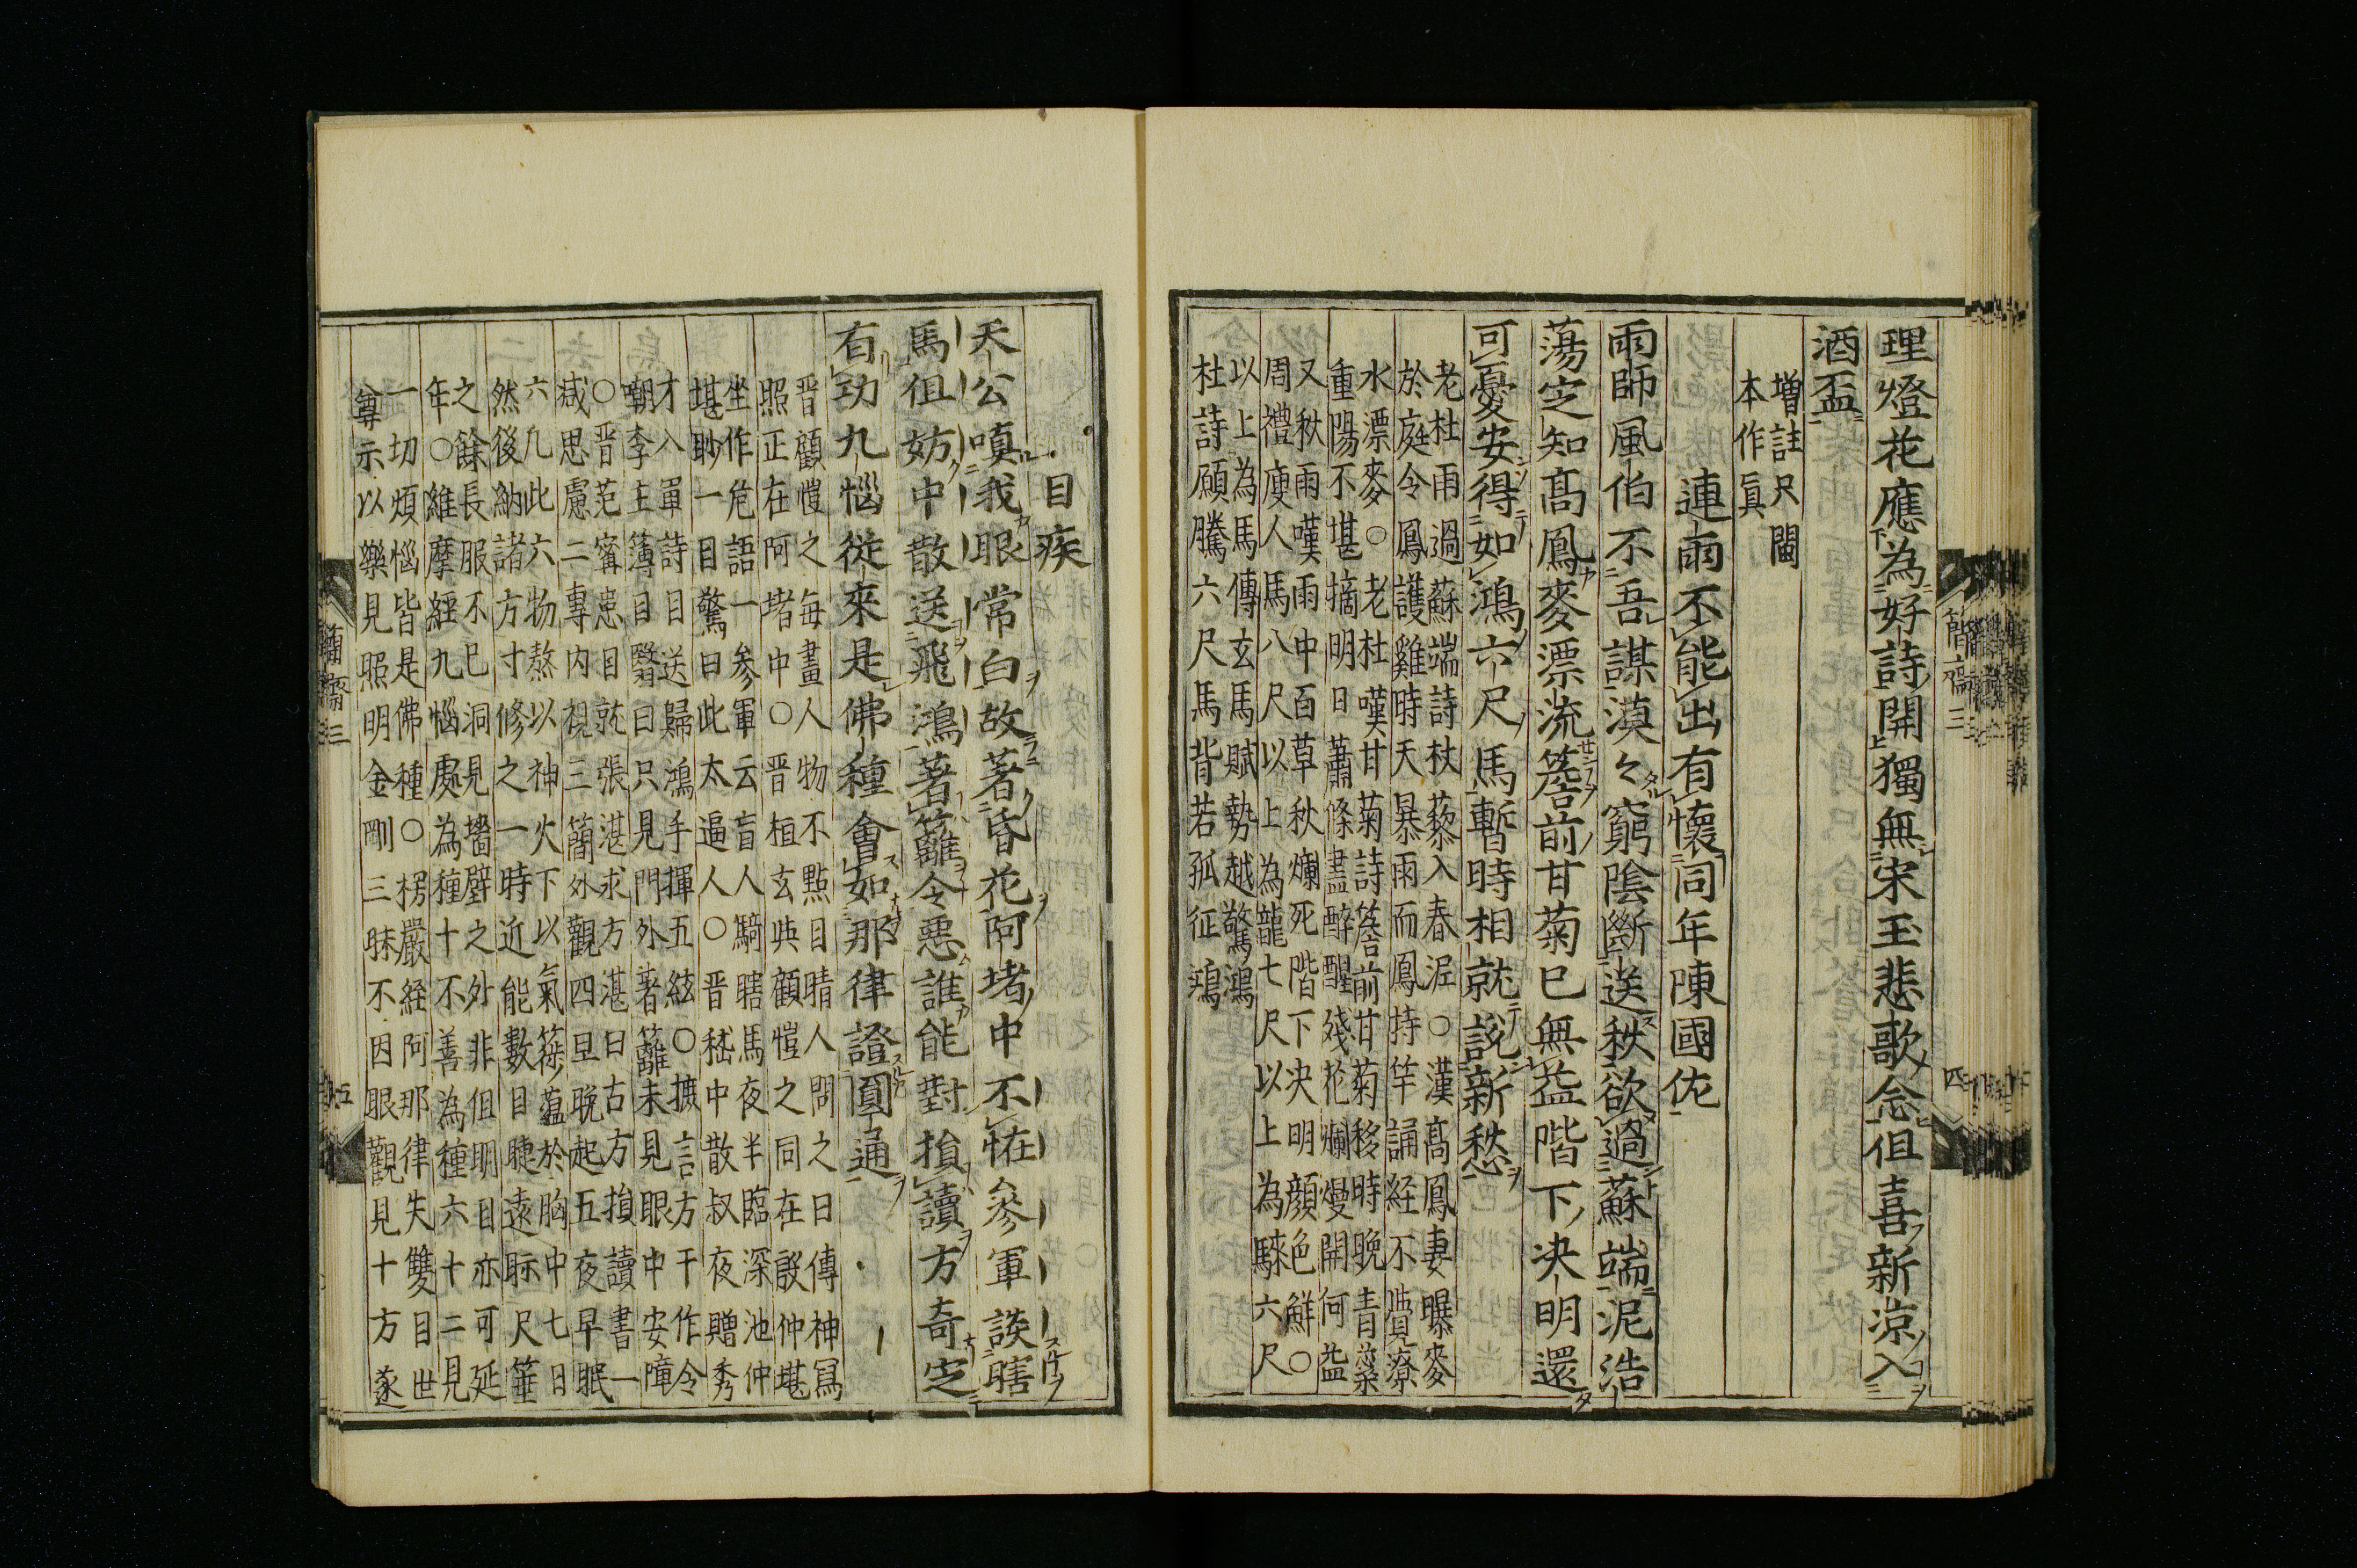 理燈花應為好詩開獨無宋玉悲歌念但喜新涼入
酒盃
増註尺閫
本作眞
連雨不能出有懷同年陳國佐
雨師風伯不吾謀漠々窮陰斷送秋欲過蘇端泥浩
蕩定知髙鳳麥漂流簷前甘菊已無益階下决明還
可憂安得如鴻六尺馬暫時相就説新愁
老杜雨過蘇端詩杖藜入春泥○漢髙鳳妻曝麥
於庭令鳳護雞時天暴雨而鳳持竿誦経不覺潦
水漂麥○老杜嘆甘菊詩簷前甘菊移時晩青蘂
重陽不堪摘明日蕭條盡醉醒殘花爛熳開何益
又秋雨嘆雨中百草秋爛死階下决明顔色鮮○
周禮廋人馬八尺以上為龍七尺以上為騋六尺
以上為馬傅玄馬賦勢越驚鴻
杜詩願騰六尺馬背若孤征鴻
簡齋三
四
目疾
天公嗔我眼常白故著昏花阿堵中不恠參軍談瞎
馬但妨中散送飛鴻著籬令惡誰能對損讀方奇定
有功九惱從來是佛種會如那律證圓通
晋顧愷之每畫人物不點目睛人問之曰傳神冩
照正在阿堵中○晋桓玄與顧愷之同在殷仲堪
坐作危語一參軍云盲人騎瞎馬夜半臨深池仲
堪眇一目驚曰此太逼人○晋嵇中散叔夜贈秀
才入軍詩目送歸鴻手揮五絃○摭言方干作令
嘲李主簿目翳曰只見門外著籬未見眼中安障
○晋范甯患目就張湛求方湛曰古方損讀書一
减思慮二專内視三簡外觀四旦晩起五夜早眠
六凡此六物熬以神火下以氣簁蘊於胸中七日
然後納諸方寸修之一時近能數目睫遠眎尺箠
之餘長服不已洞見墻壁之外非但明目亦可延
年○維摩經九惱處為種十不善為種六十二見
一切煩惱皆是佛種○楞嚴経阿那律失雙目世
尊示以樂見照明金剛三昧不因眼觀見十方遂
簡齋三
五